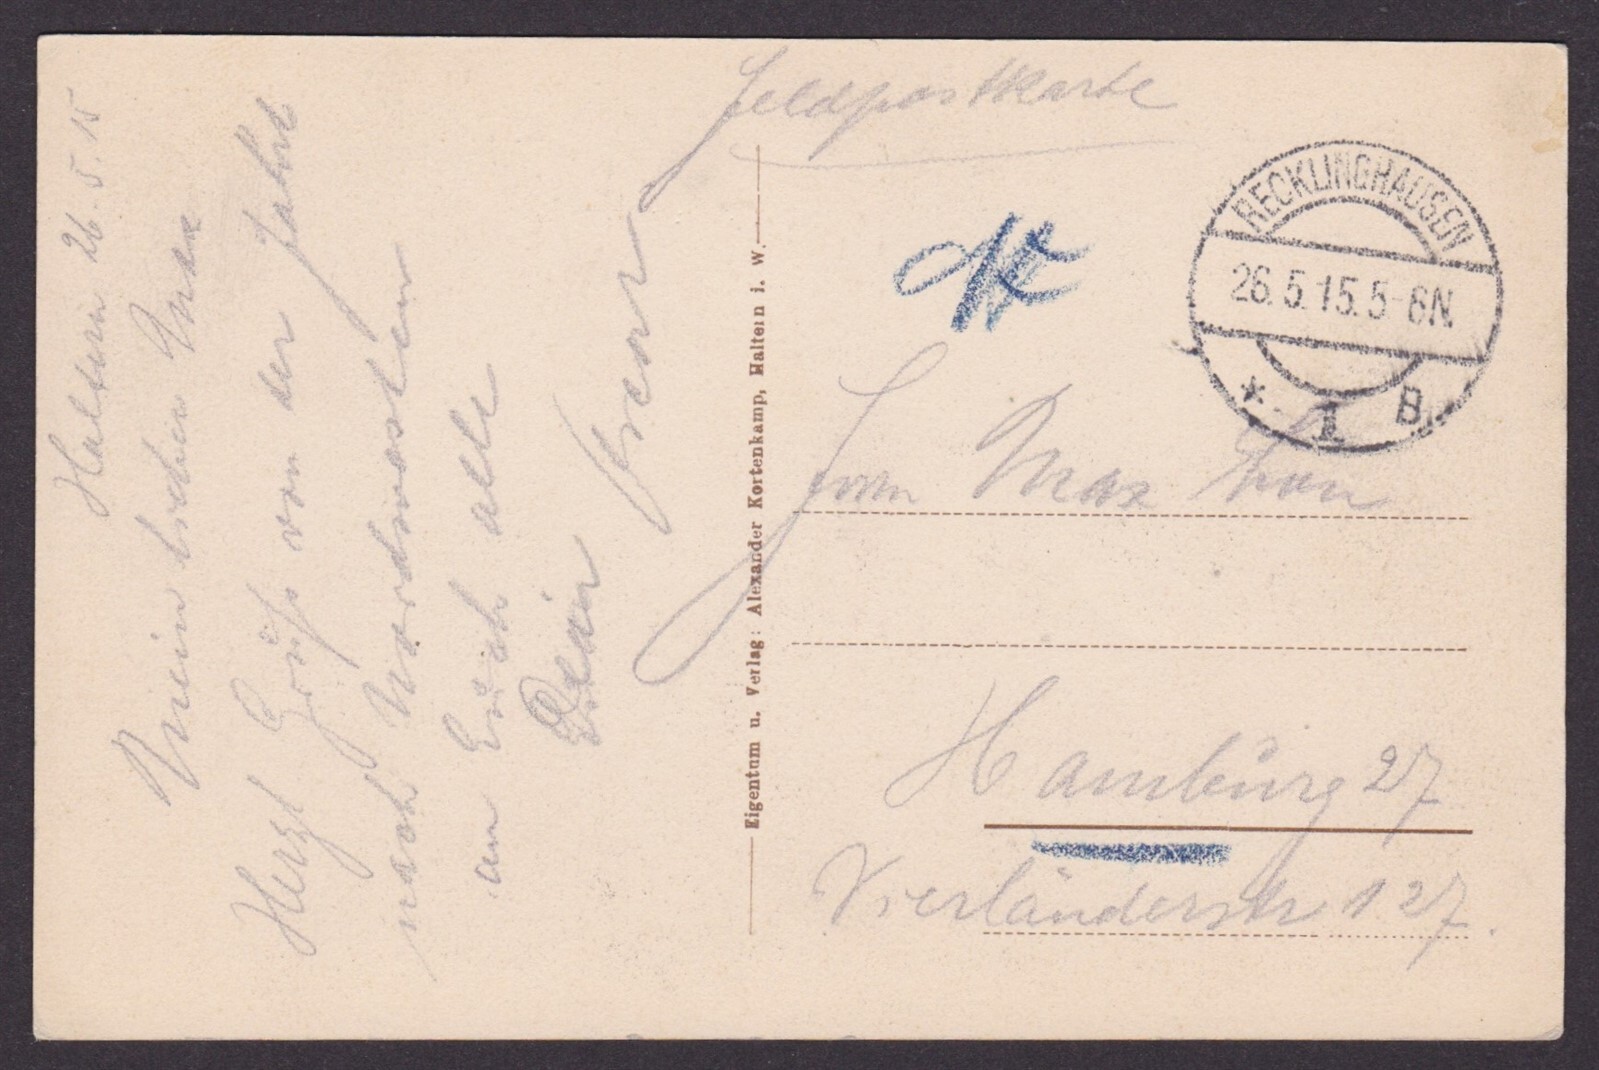 Haltern 26.5.15
Mein lieber Max
Herzl Grüße von der Fahrt
nach Nordwesten
an Euch alle
Dein
Feldpostkarte
Eigentum u. Verlag: Alexander Kortenkamp, Haltern i. W.
RECKLINGHAUSEN
26.5.15.5-6N.
* 1 B
Herrn Max
Hamburg 27
Vierländerstr 127.